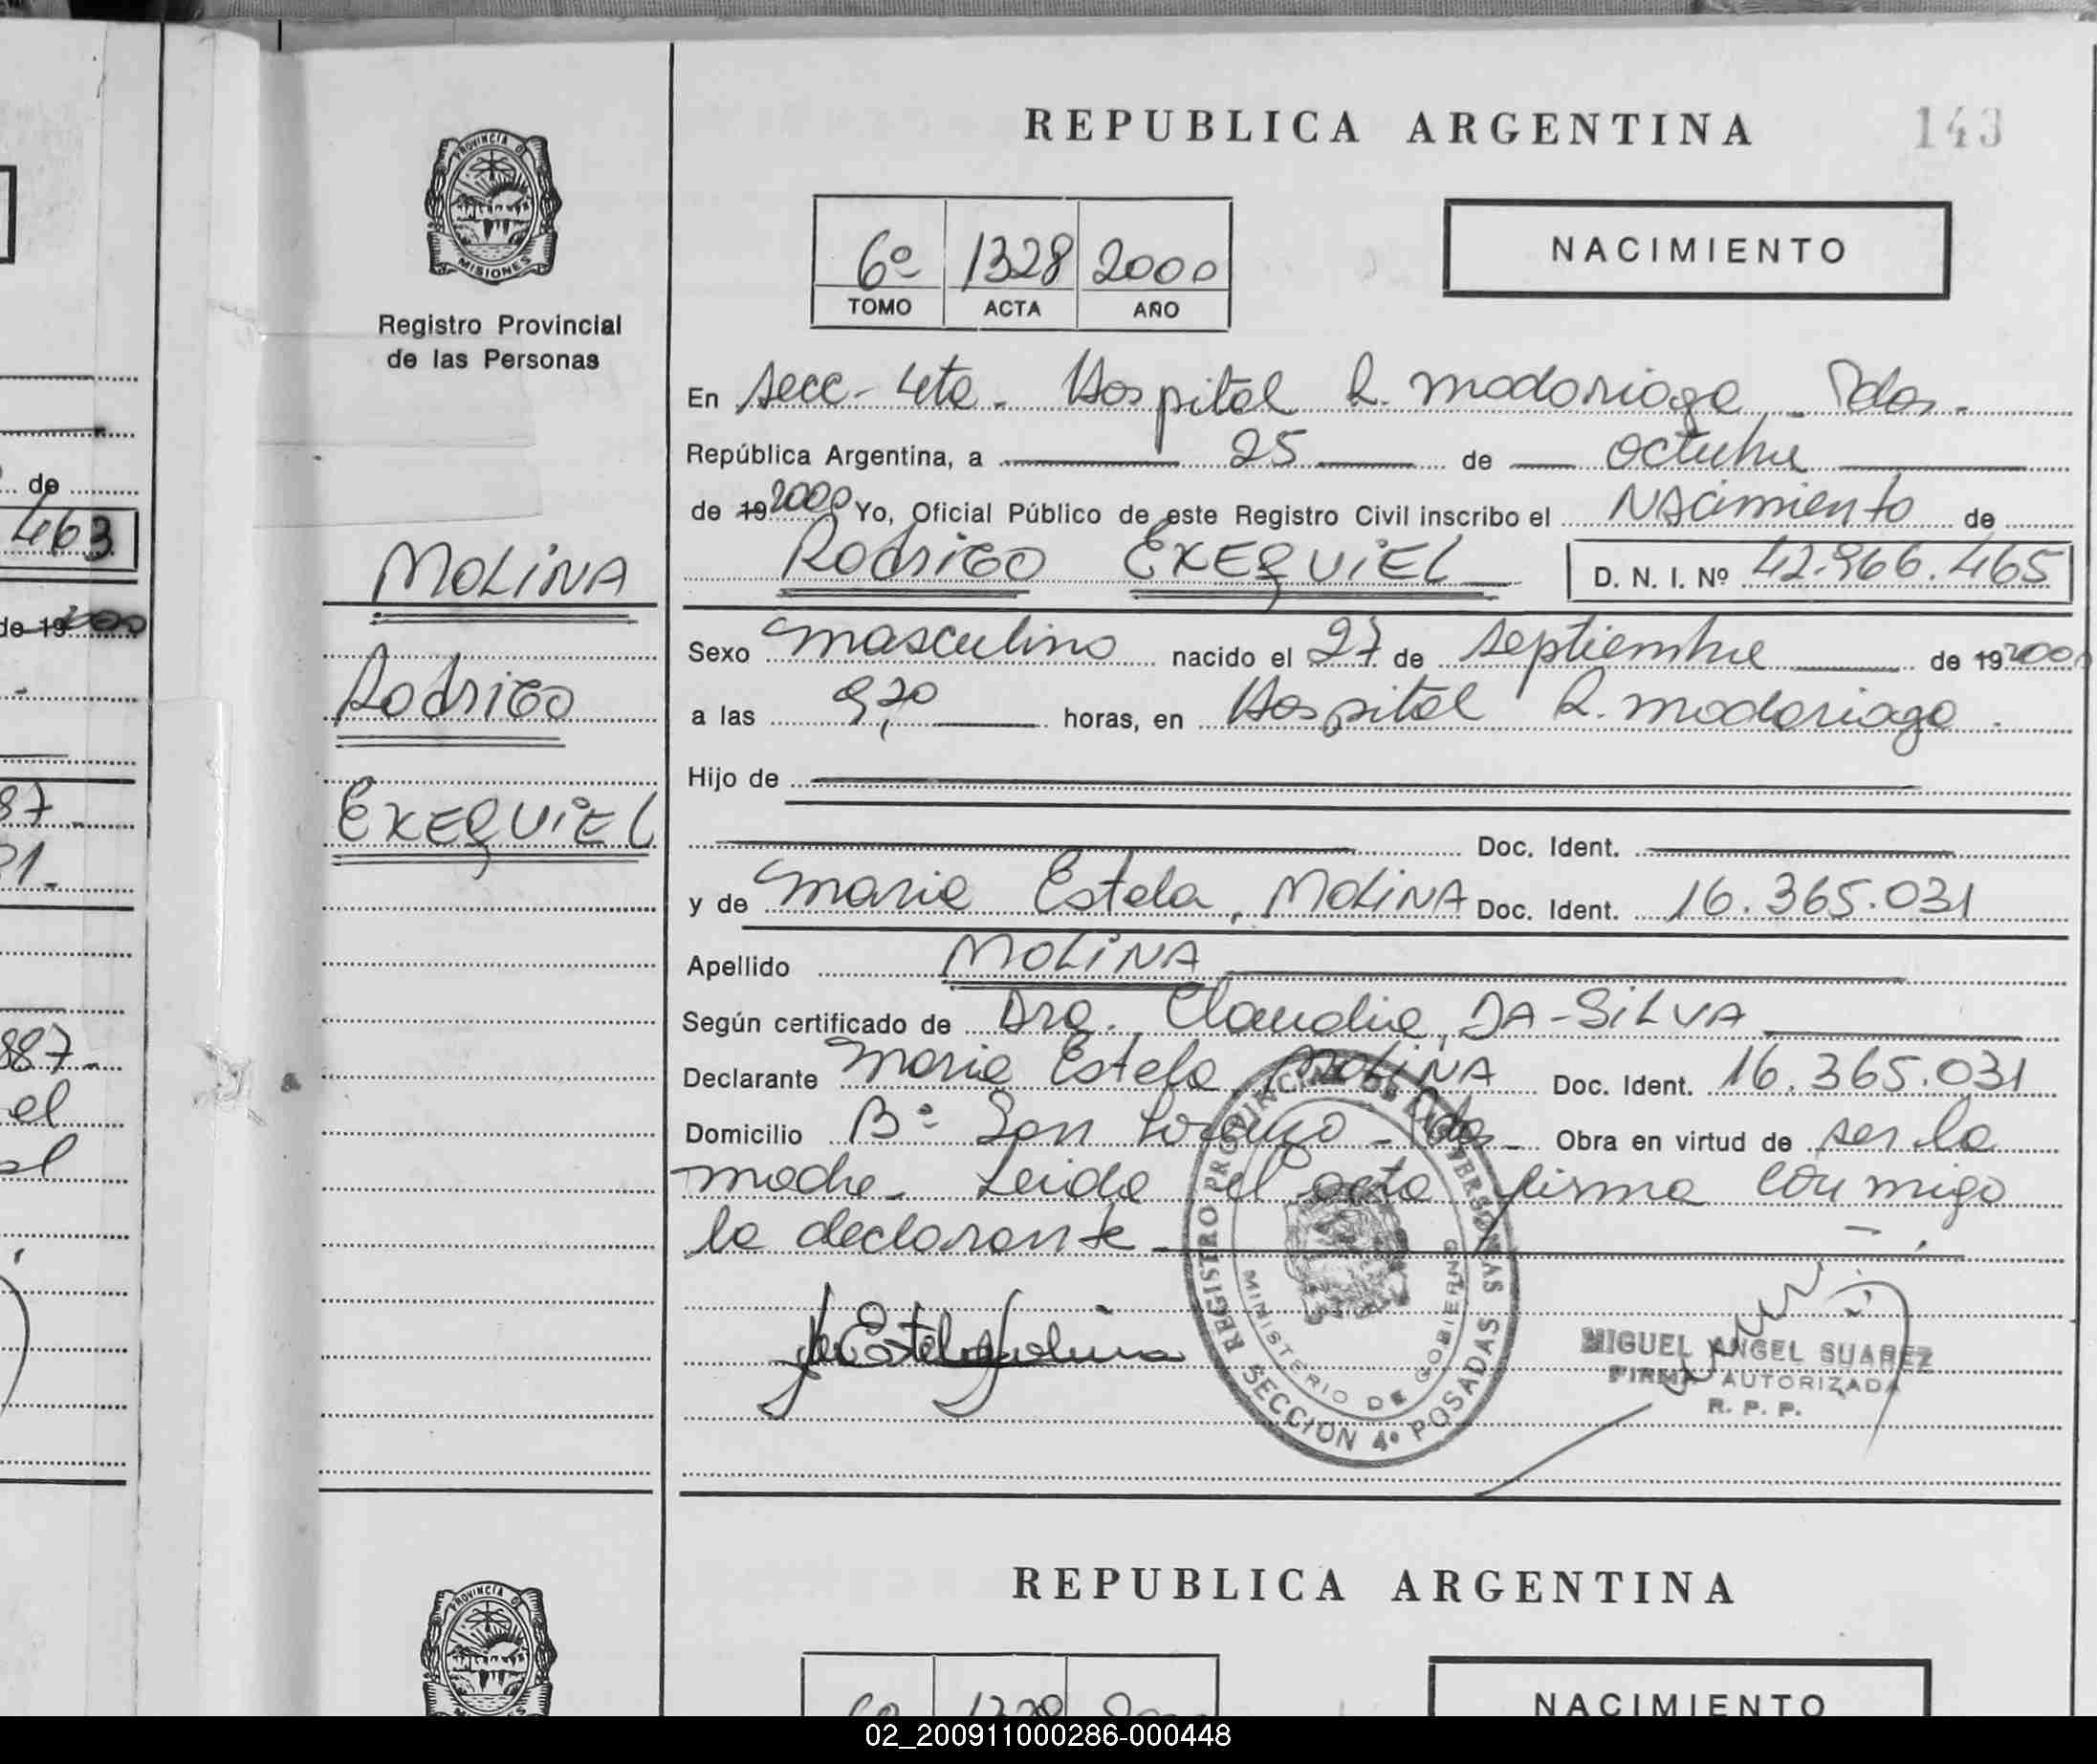 REPUBLICA ARGENTINA 143
PROVINCIA D
MISIONES
Registro Provincial
de las Personas
6º 1328 2000
TOMO ACTA AÑO
NACIMIENTO
En Secc- 4ta. Hospital R. Madariaga - Pdas.
República Argentina, a 25 de octubre
de 19 2000 Yo, Oficial Público de este Registro Civil inscribo el Nacimiento de
Rodrigo EXEQUiEL D. N. I. Nº 42.966.465
Sexo masculino nacido el 27 de septiembre de 19 2000
a las 9,20 horas, en Hospital R. Madariaga.
Hijo de
Doc. Ident.
y de Maria Estela, MOLiNA Doc. Ident. 16.365.031
Apellido MOLiNA
Según certificado de Dra. Claudia, DA-SiLVA
Declarante Maria Estela, MOLiNA Doc. Ident. 16.365.031
Domicilio Bº San Lorenzo - Pdas - Obra en virtud de ser la
madre. Leida el acta firma conmigo
la declarante.
MOLiNA
Rodrigo
EXEQUiEL
REGISTRO PROVINCIAL DE LAS PERSONAS
MINISTERIO DE GOBIERNO
SECCION 4º POSADAS
Estela Molina
MIGUEL ANGEL SUAREZ
FIRMA AUTORIZADA
R. P. P.
de
463
de 19
87.
887.
el
REPUBLICA ARGENTINA
PROVINCIA D
1328
NACIMIENTO
02_200911000286-000448